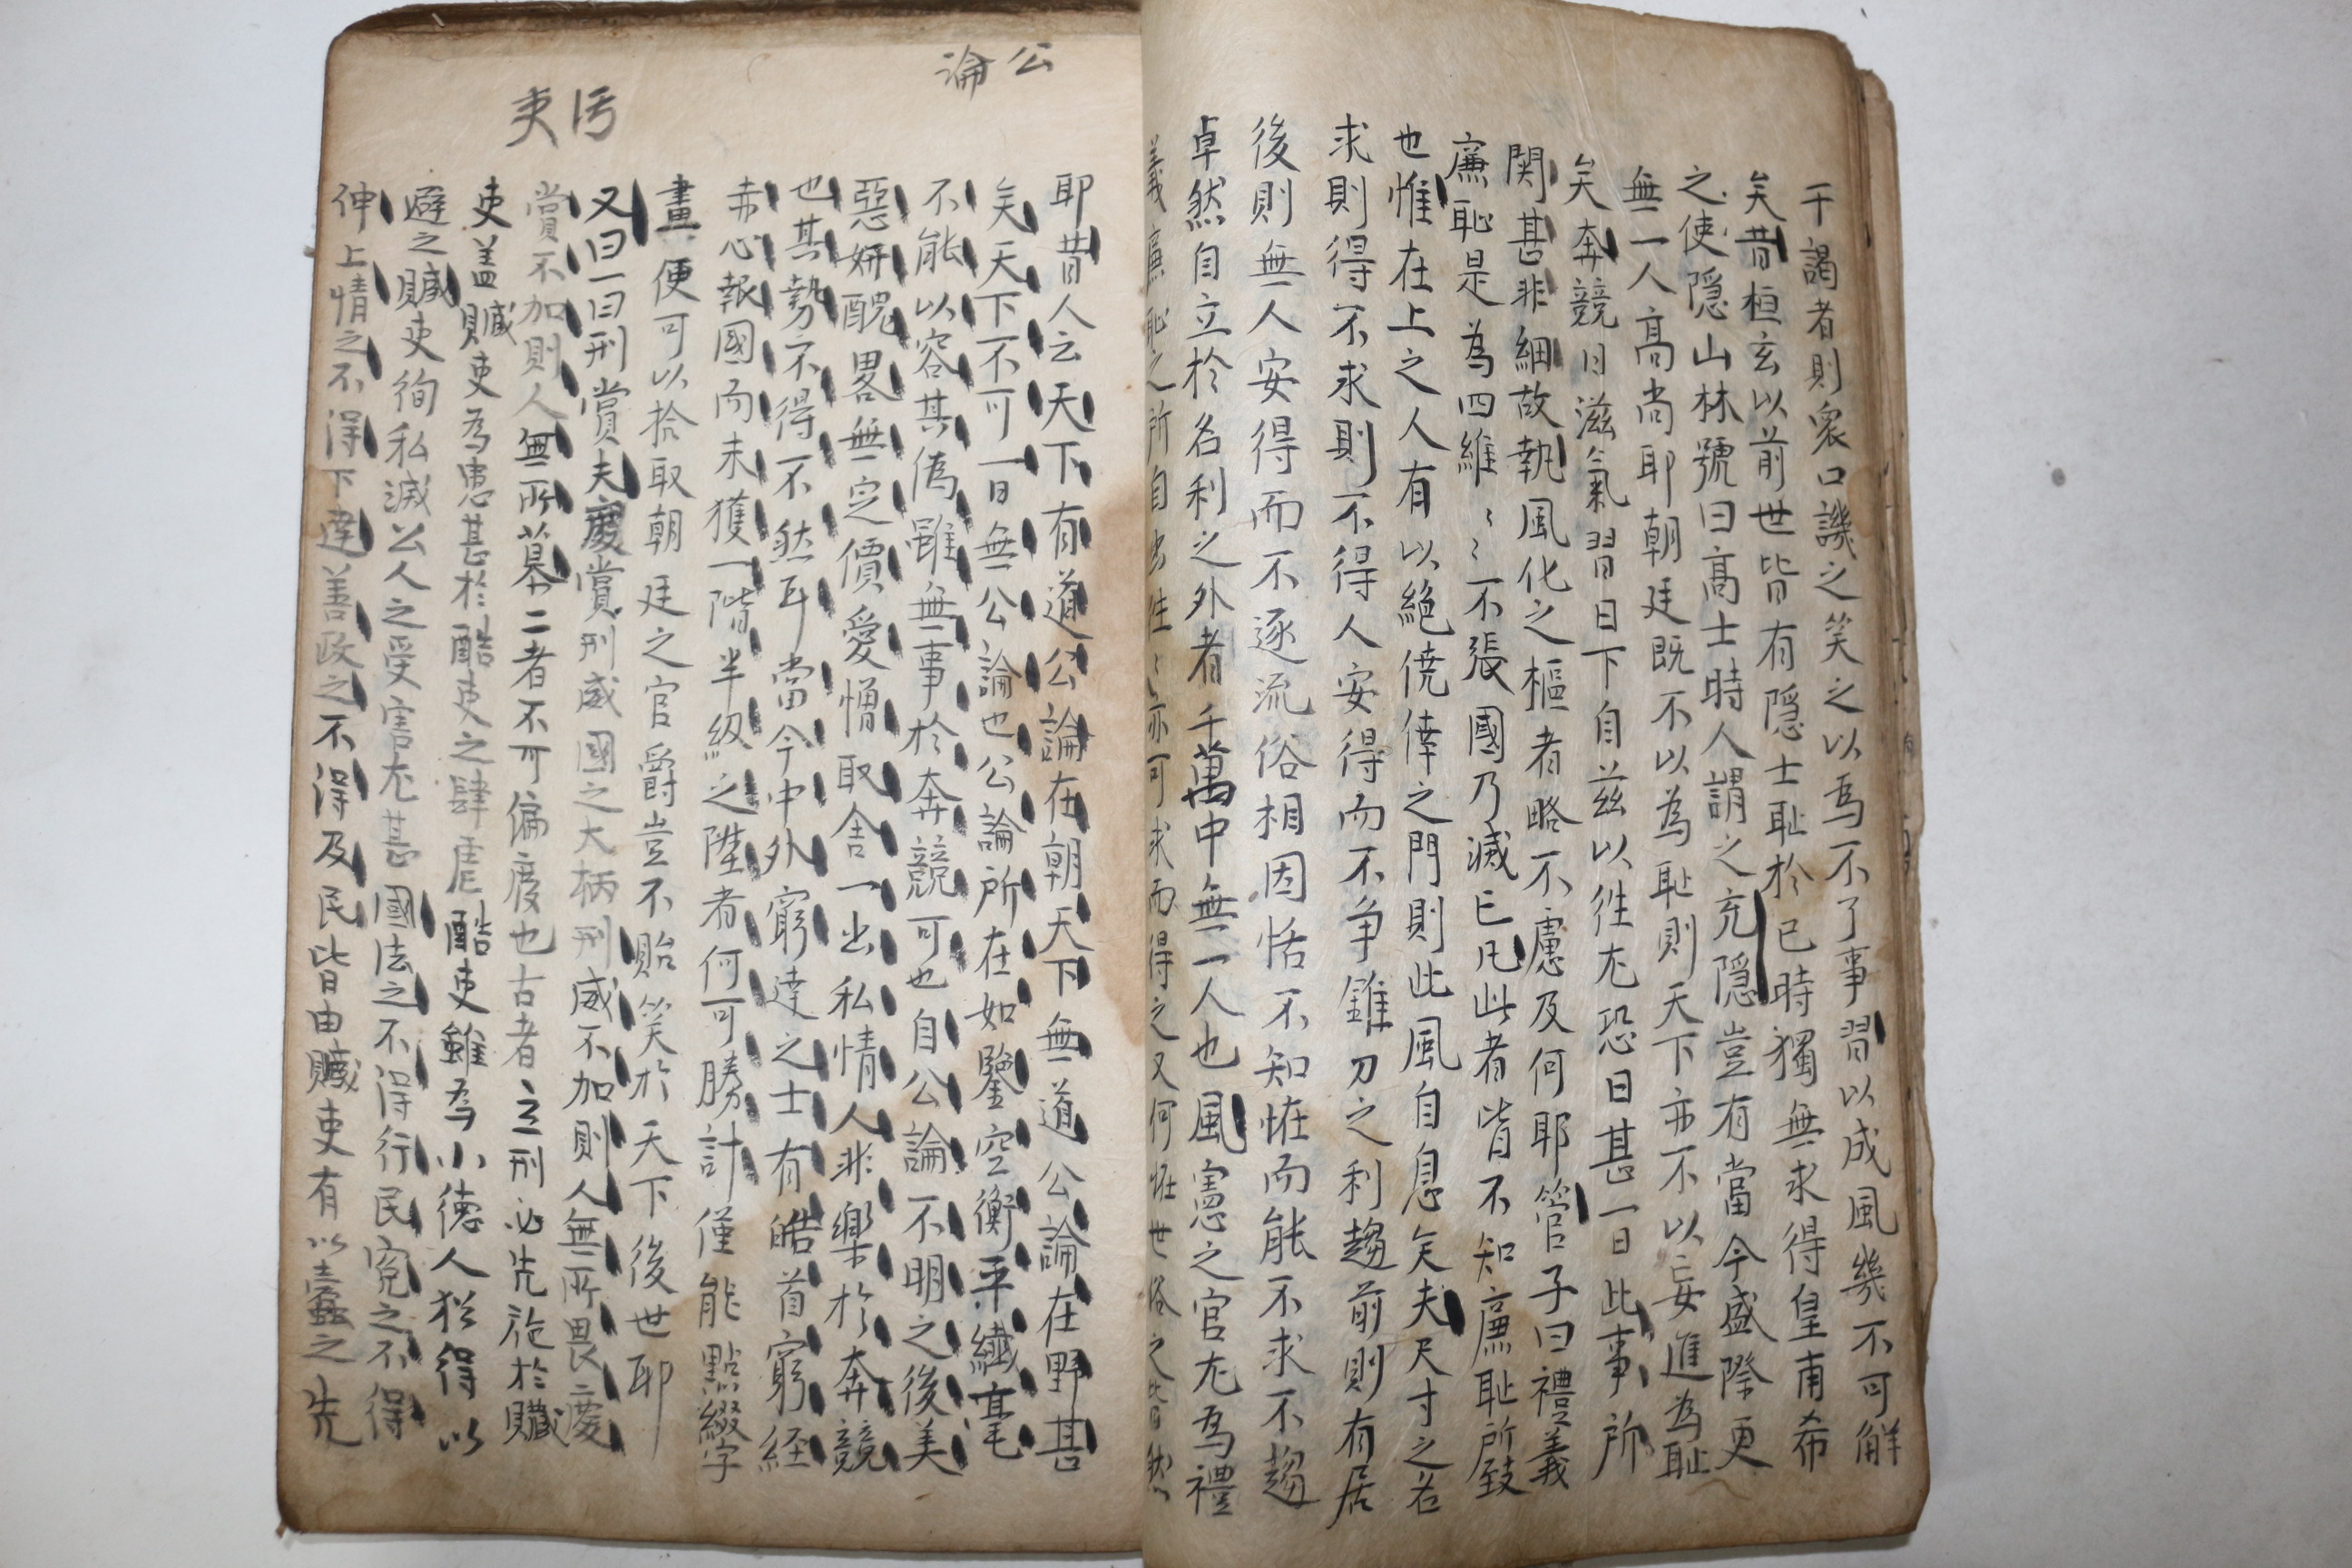 干謁者則衆口譏之笑之以爲不了事習以成風幾不可觧
矣昔桓玄以前世皆有隱士耻於己時獨無求得皇甫希
之使隱山林號曰高士時人謂之充隱豈有當今盛際更
無一人高尚耶朝廷既不以為耻則天下亦不以妄進為耻
矣奔競日滋氣習日下自茲以徃尤恐日甚一日此事所
関甚非細故執風化之樞者略不慮及何耶管子曰禮義
廉恥是為四維〻〻不張國乃滅亡凡此者皆不知廉耻所致
也惟在上之人有以絶僥倖之門則此風自息矣夫尺寸之名
求則得不求則不得人安得而不争錐刀之利趨前則有居
後則無人安得而不逐流俗相因恬不知恠而能不求不趨
卓然自立於名利之外者千萬中無一人也風憲之官尤為禮
義廉恥之所自出徃〻亦可求而得之又何恠世俗之皆然
公論
耶昔人云天下有道公論在朝天下無道公論在野甚
矣天下不可一日無公論也公論所在如鑒空衡平纎毫
不能以容其僞雖無事於奔競可也自公論不明之後美
惡妍醜畧無定價愛憎取舍一出私情人非樂於奔競
也其勢不得不然耳當今中外窮達之士有皓首窮経
赤心報國而未獲一階半級之陞者何可勝計僅能點綴字
畫便可以拾取朝廷之官爵豈不貽笑於天下後世耶
汚吏
又曰一曰刑賞夫慶賞刑威國之大柄刑威不加則人無所畏慶
賞不加則人無所慕二者不可偏廢也古者之刑必先施於贓
吏盖贓吏為患甚於酷吏之肆虐酷吏雖為小德人猶得以
避之贓吏徇私滅公人之受害尤甚國法之不得行民寃之不得
伸上情之不得下達善政之不得及民皆由贓吏有以蠹之先